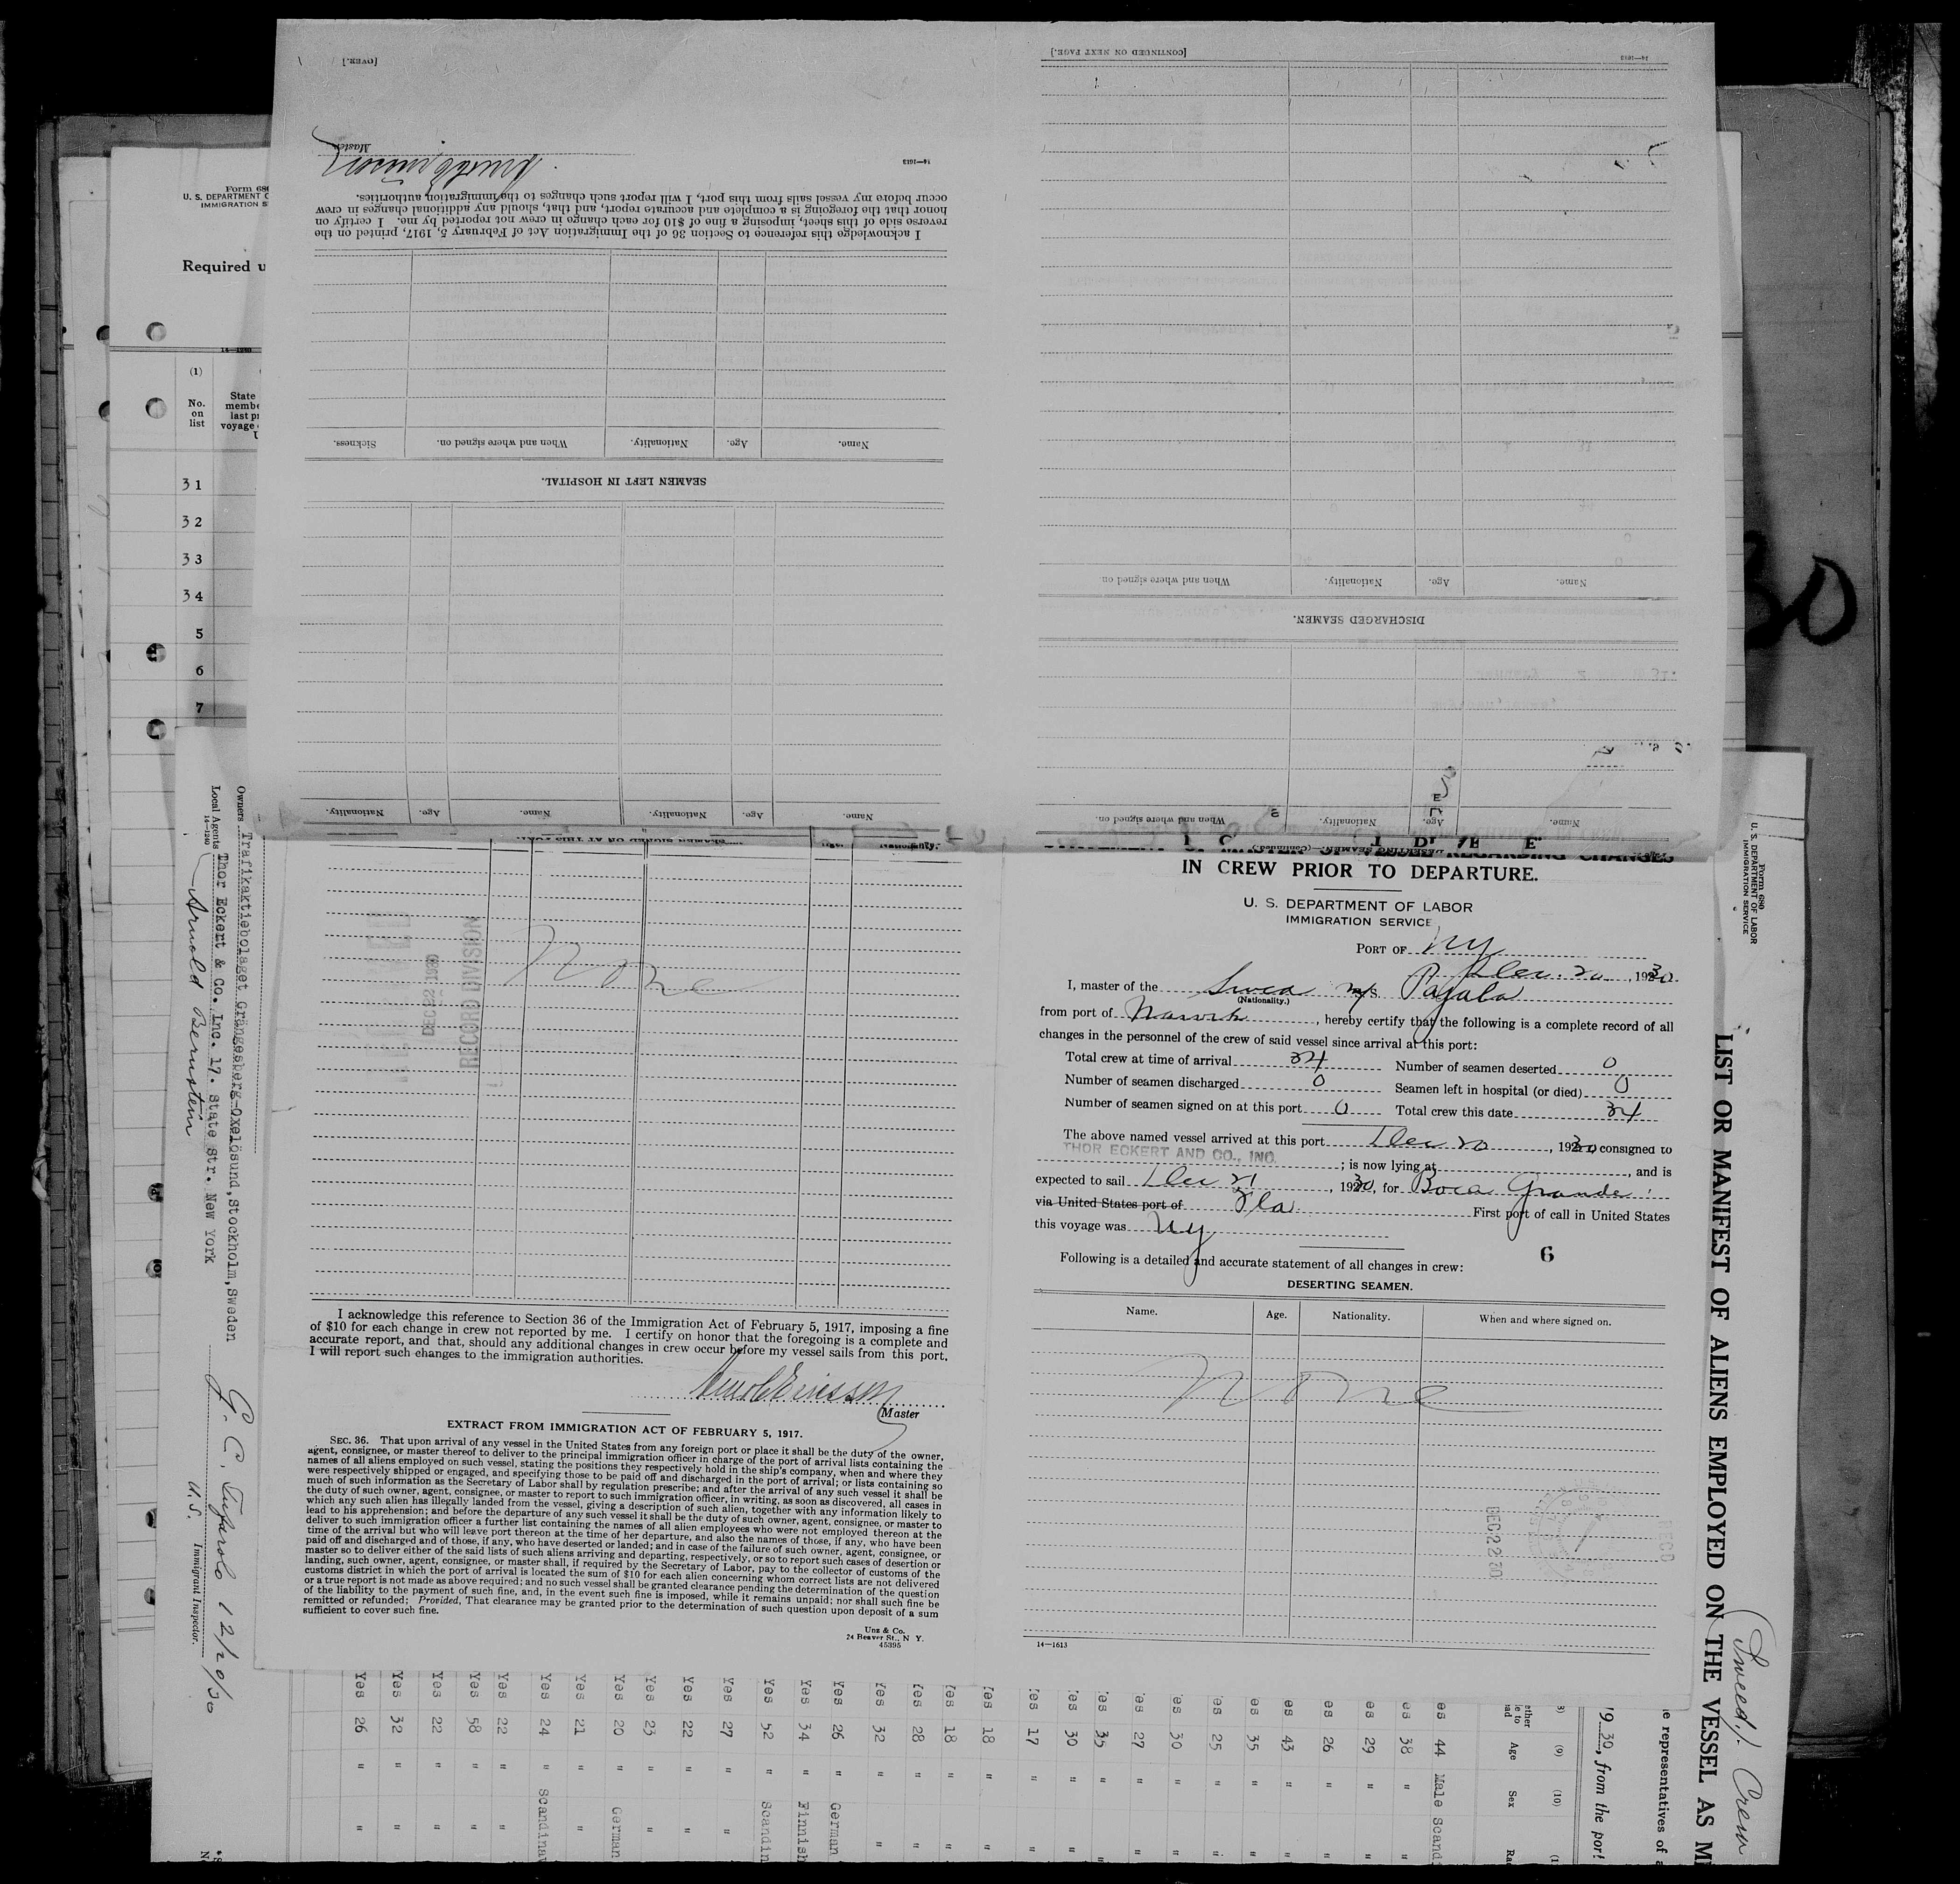 [OVER.]
Master.
14—1613
I acknowledge this reference to Section 36 of the Immigration Act of February 5, 1917, printed on the
reverse side of this sheet, imposing a fine of $10 for each change in crew not reported by me. I certify on
honor that the foregoing is a complete and accurate report, and that, should any additional changes in crew
occur before my vessel sails from this port, I will report such changes to the immigration authorities.
Name. Age. Nationality. When and where signed on. Sickness.
SEAMEN LEFT IN HOSPITAL.
Name. Age. Nationality. Name. Age. Nationality.
[CONTINUED ON NEXT PAGE.]
14—1613
Name. Age. Nationality. When and where signed on.
DISCHARGED SEAMEN.
Name. Age. Nationality. When and where signed on.
DESERTING SEAMEN—(Continued.)
Form 680
U. S. DEPARTMENT O
IMMIGRATION S
Required u
14—1240
(1)
No.
on
list
State
membe
last pr
voyage
31
32
33
34
5
6
7
Owners Trafikaktiebolaget Grängesberg-Oxelösund, Stockholm, Sweden
Local Agents Thor Eckert & Co. Inc. 17. State Str. New York
14—1240
Arnold Bernstein
12/20/30
U.S. Immigrant Inspector.
None
DEC 22 1930
RECORD DIVISION
I acknowledge this reference to Section 36 of the Immigration Act of February 5, 1917, imposing a fine
of $10 for each change in crew not reported by me. I certify on honor that the foregoing is a complete and
accurate report, and that, should any additional changes in crew occur before my vessel sails from this port,
I will report such changes to the immigration authorities.
Master
EXTRACT FROM IMMIGRATION ACT OF FEBRUARY 5, 1917.
SEC. 36. That upon arrival of any vessel in the United States from any foreign port or place it shall be the duty of the owner,
agent, consignee, or master thereof to deliver to the principal immigration officer in charge of the port of arrival lists containing the
names of all aliens employed on such vessel, stating the positions they respectively hold in the ship's company, when and where they
were respectively shipped or engaged, and specifying those to be paid off and discharged in the port of arrival; or lists containing so
much of such information as the Secretary of Labor shall by regulation prescribe; and after the arrival of any such vessel it shall be
the duty of such owner, agent, consignee, or master to report to such immigration officer, in writing, as soon as discovered, all cases in
which any such alien has illegally landed from the vessel, giving a description of such alien, together with any information likely to
lead to his apprehension; and before the departure of any such vessel it shall be the duty of such owner, agent, consignee, or master to
deliver to such immigration officer a further list containing the names of all alien employees who were not employed thereon at the
time of the arrival but who will leave port thereon at the time of her departure, and also the names of those, if any, who have been
paid off and discharged and of those, if any, who have deserted or landed; and in case of the failure of such owner, agent, consignee, or
master so to deliver either of the said lists of such aliens arriving and departing, respectively, or so to report such cases of desertion or
landing, such owner, agent, consignee, or master shall, if required by the Secretary of Labor, pay to the collector of customs of the
customs district in which the port of arrival is located the sum of $10 for each alien concerning whom correct lists are not delivered
or a true report is not made as above required; and no such vessel shall be granted clearance pending the determination of the question
of the liability to the payment of such fine, and, in the event such fine is imposed, while it remains unpaid; nor shall such fine be
remitted or refunded; Provided, That clearance may be granted prior to the determination of such question upon deposit of a sum
sufficient to cover such fine.
Unz & Co.
24 Beaver St., N Y.
45395
IN CREW PRIOR TO DEPARTURE.
U. S. DEPARTMENT OF LABOR
IMMIGRATION SERVICE
PORT OF NY
Dec. 20, 1930.
I, master of the Swea m/s Pajala
(Nationality.)
from port of Narvik, hereby certify that the following is a complete record of all
changes in the personnel of the crew of said vessel since arrival at this port:
Total crew at time of arrival 34 Number of seamen deserted 0
Number of seamen discharged 0 Seamen left in hospital (or died) 0
Number of seamen signed on at this port 0 Total crew this date 34
The above named vessel arrived at this port Dec 20, 1930 consigned to
THOR ECKERT AND CO., INC. ; is now lying at , and is
expected to sail Dec 21, 1930, for Boca Grande
via United States port of Fla. First port of call in United States
this voyage was NY
Following is a detailed and accurate statement of all changes in crew: 6
DESERTING SEAMEN.
Name. Age. Nationality. When and where signed on.
None
DEC 22 30
14—1613
Form 680
U. S. DEPARTMENT OF LABOR
IMMIGRATION SERVICE
LIST OR MANIFEST OF ALIENS EMPLOYED ON THE VESSEL AS M
(Swed.) Crew
e representatives of a
19 30, from the port
(9) Age
(10) Sex
es 44 Male Scand
es 38 " "
es 29 " "
es 26 " "
es 43 " "
es 35 " "
es 25 " "
es 30 " "
es 27 " "
es 35 " "
es 30 " "
es 17 " "
es 18 " "
es 18 " "
es 28 " "
es 32 " "
Yes 26 " German
Yes 34 " Finnish
Yes 52 " Scandin
Yes 27 " "
Yes 22 " "
Yes 23 " "
Yes 20 " German
Yes 21 " "
Yes 24 " Scandinav
Yes 22 " "
Yes 58 " "
Yes 22 " "
Yes 32 " "
Yes 26 " "